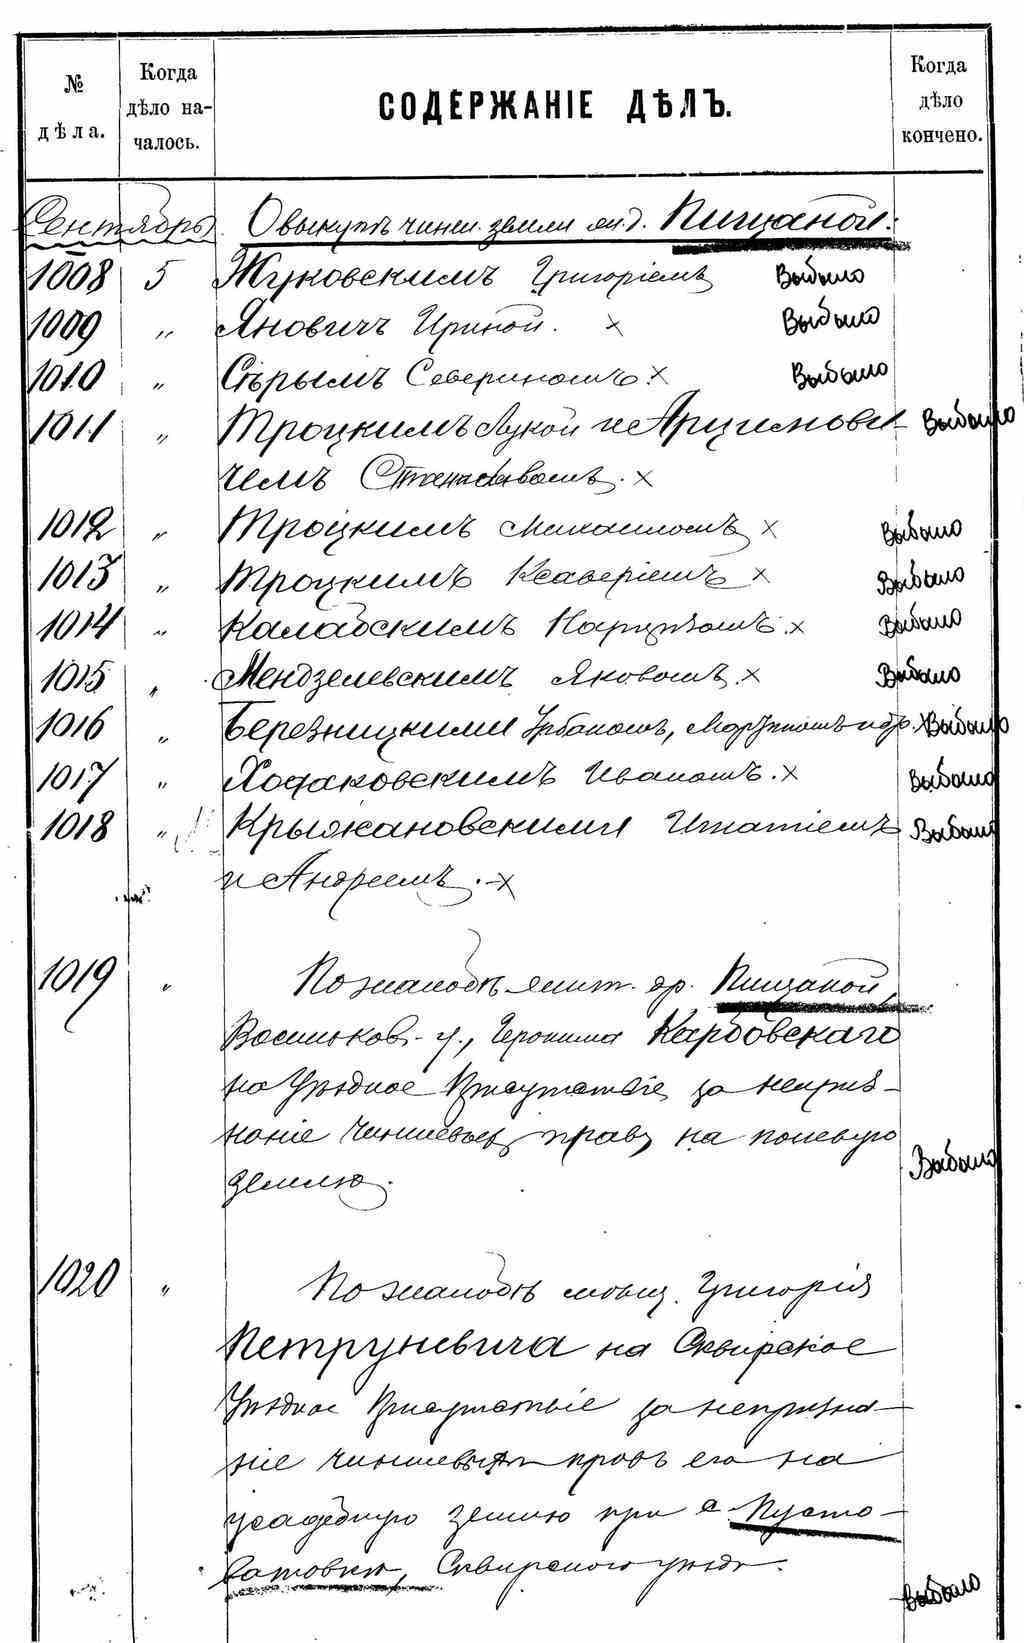 № дѣла.
Когда дѣло на-чалось.
СОДЕРЖАНІЕ ДѢЛЪ.
Когда дѣло кончено.
Сентябрь О выкупѣ чинш. земли Пищаной:
1008 5 Жуковскимъ Григоріемъ Выбыло
1009 „ Яновичъ Ириной. х Выбыло
1010 „ Сѣрымъ Севериномъ х Выбыло
1011 „ Троцкимъ Лукой и Арцимови- Выбыло
чемъ Станиславомъ. х
1012 „ Троцкимъ Михаиломъ х Выбыло
1013 „ Троцкимъ Ксаверіемъ х Выбыло
1014 „ Калабскимъ х Выбыло
1015 „ Мендзелевскимъ Яковомъ х Выбыло
1016 „ Березницкими Урбаномъ, Мартиномъ и др. х Выбыло
1017 „ Ходаковскимъ Иваномъ. х Выбыло
1018 „ Крыжановскими Игнатіемъ Выбыло
и Андреемъ. х
1019 „ По жалобѣ жит. др. Пищаной,
Васильков. у., Іеронима Карбовскаго
на Уѣздное Присутствіе за непризна-
ніе чиншевыхъ правъ на полевую
землю. Выбыло
1020 „ По жалобѣ мѣщ. Григорія
Петруневича на Сквирское
Уѣздное Присутствіе за непризна-
ніе чиншевыхъ правъ его на
усадебную землю при с. Пусто-
ватовкѣ, Сквирскаго уѣзда.
Выбыло